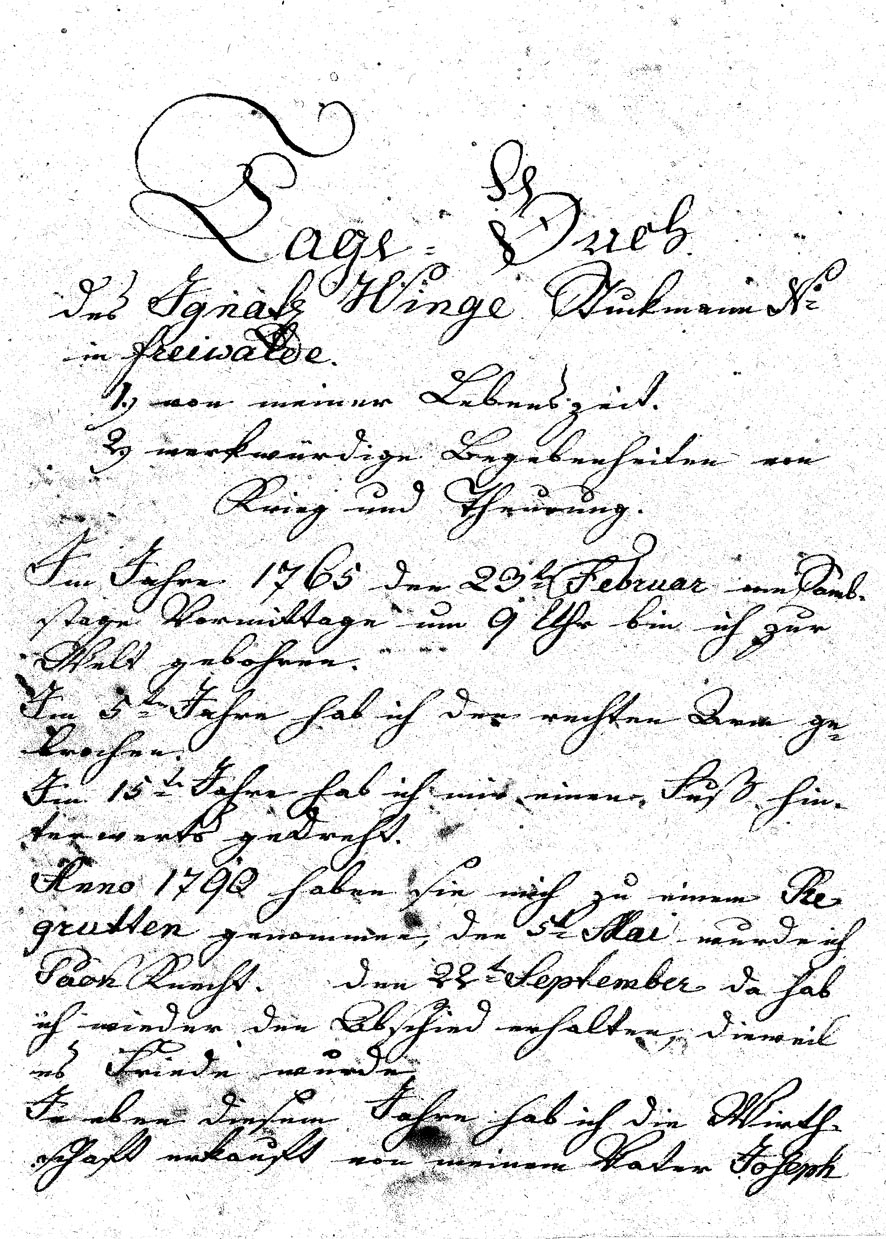 Tage-Buch
des Ignatz Winge Stuckmann No
in Freiwalde.
1.) von meiner Lebenszeit.
2.) merkwürdige Begebenheiten von
Krieg und Theurung.
Im Jahre 1765 den 23t Februar am Sams-
stage Vormittage um 9 Uhr bin ich zur
Welt gebohren.
Im 5ten Jahre hab ich den rechten Arm ge-
brochen.
Im 15t Jahre hab ich mir einen Fuß hin-
terwerts gedreht.
Anno 1790 haben sie mich zu einem Re
grutten genommen, den 5t Mai wurde ich
Pack Knecht. den 22t September da hab
ich wieder den Abschied erhalten, dieweil
es Friede wurde
In eben diesem Jahre hab ich die Wirth-
schaft erkauft von meinem Vater Joseph